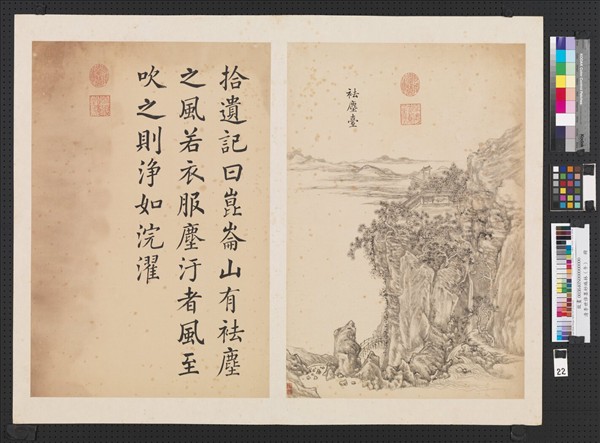 袪塵臺
拾遺記曰崑崙山有袪塵
之風若衣服塵汙者風至
吹之則浄如浣濯
22